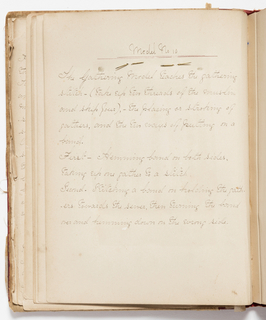 Model Five
The Gathering Model Learns the gathering
stitch - (Take up two threads of the muslin
and skip four), - the placing or stroking of
gathers, and the two ways of putting on a
band.
First - Hemming band on both sides,
taking up one gather to a stitch.
Second - Stitching a band on holding the gath-
ers towards the sewer, then turning the band
over and hemming down on the wrong side.